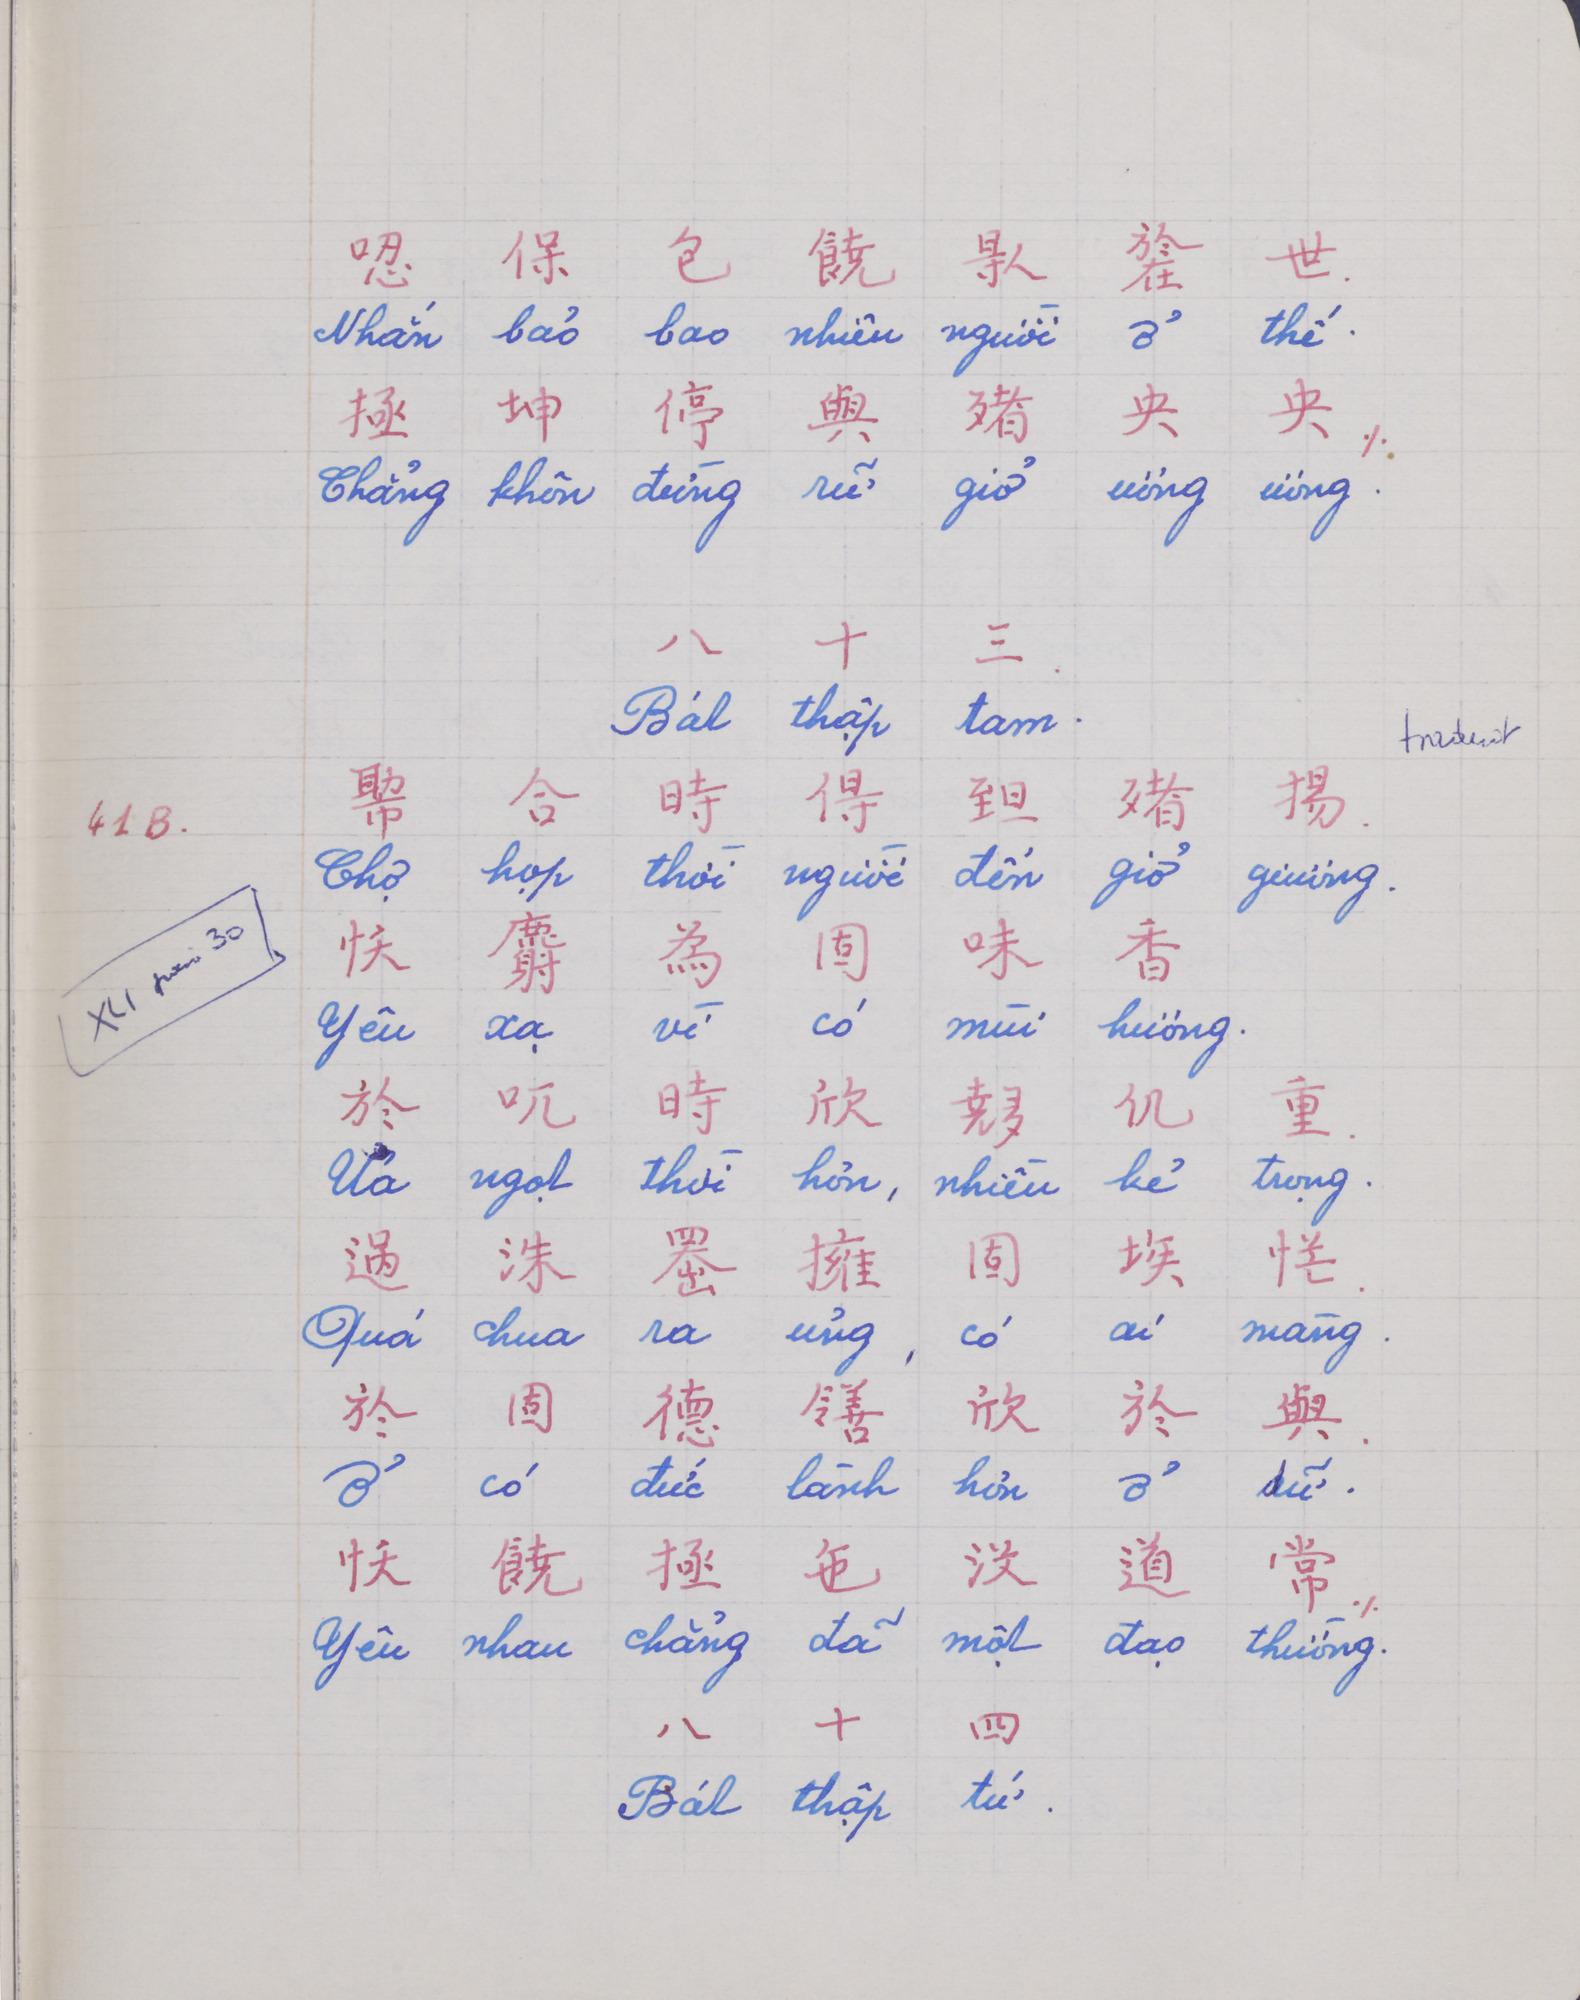 唿 保 包 饒 㝵 於 世.
Nhắn bảo bao nhiêu người ở thế.
拯 坤 停 與 㺔 央 央 ٪
Chẳng khôn đừng rữ giở ương ương.
八 十 三.
Bát thập tam.
traduit
41B.
合 時 得 㺔 揚.
Chợ họp thời người đến giở giương.
XLI
30
㤇 麝 為 固 味 香
Yêu xạ vì có mùi hương.
於 吭 時 欣 仉 重.
Ưa ngọt thời hơn, nhiều kẻ trọng.
過 洙 擁 固 埃 恾.
Quá chua ra ủng, có ai màng.
於 固 德 欣 於 與.
Ở có đức lành hơn ở dữ.
㤇 饒 拯 㐌 没 道 常 ٪
Yêu nhau chẳng đã một đạo thường.
八 十 四
Bát thập tứ.